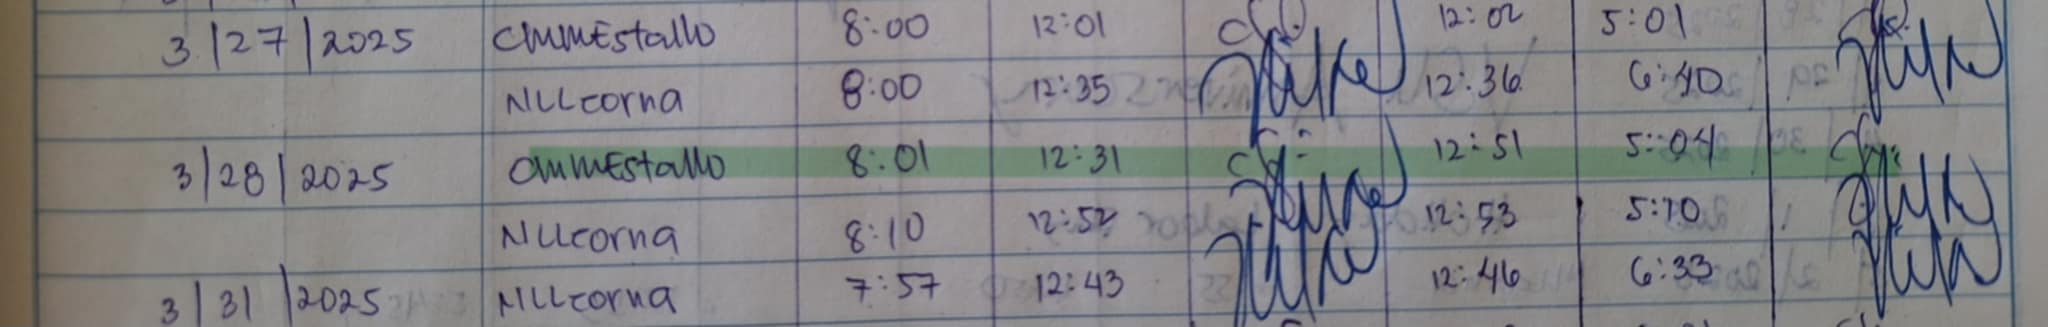 3/27/2025 CMMEstallo 8:00 12:01 12:02 5:01
NLLcorna 8:00 12:35 12:36 6:40
3/28/2025 CMMEstallo 8:01 12:31 12:51 5:04
NLLcorna 8:10 12:52 12:53 5:10
3/31/2025 NLLcorna 7:57 12:43 12:46 6:33